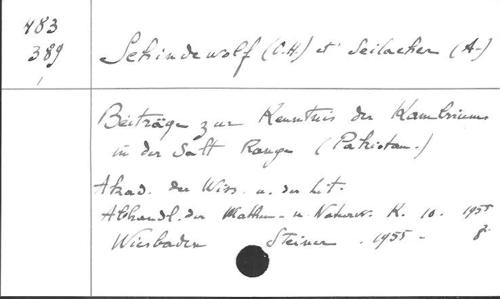 483
389
Schindewolf (O.H.) et Seilacher (A.)
Beiträge zur Kenntnis der Kambriums
in der Salt Range (Pakistan.)
Akad. der Wiss. u. der Lit.
Abhandl. der Mathem- u. Naturw. K. 10. 1955
Wiesbaden Steiner. 1955 - 8.